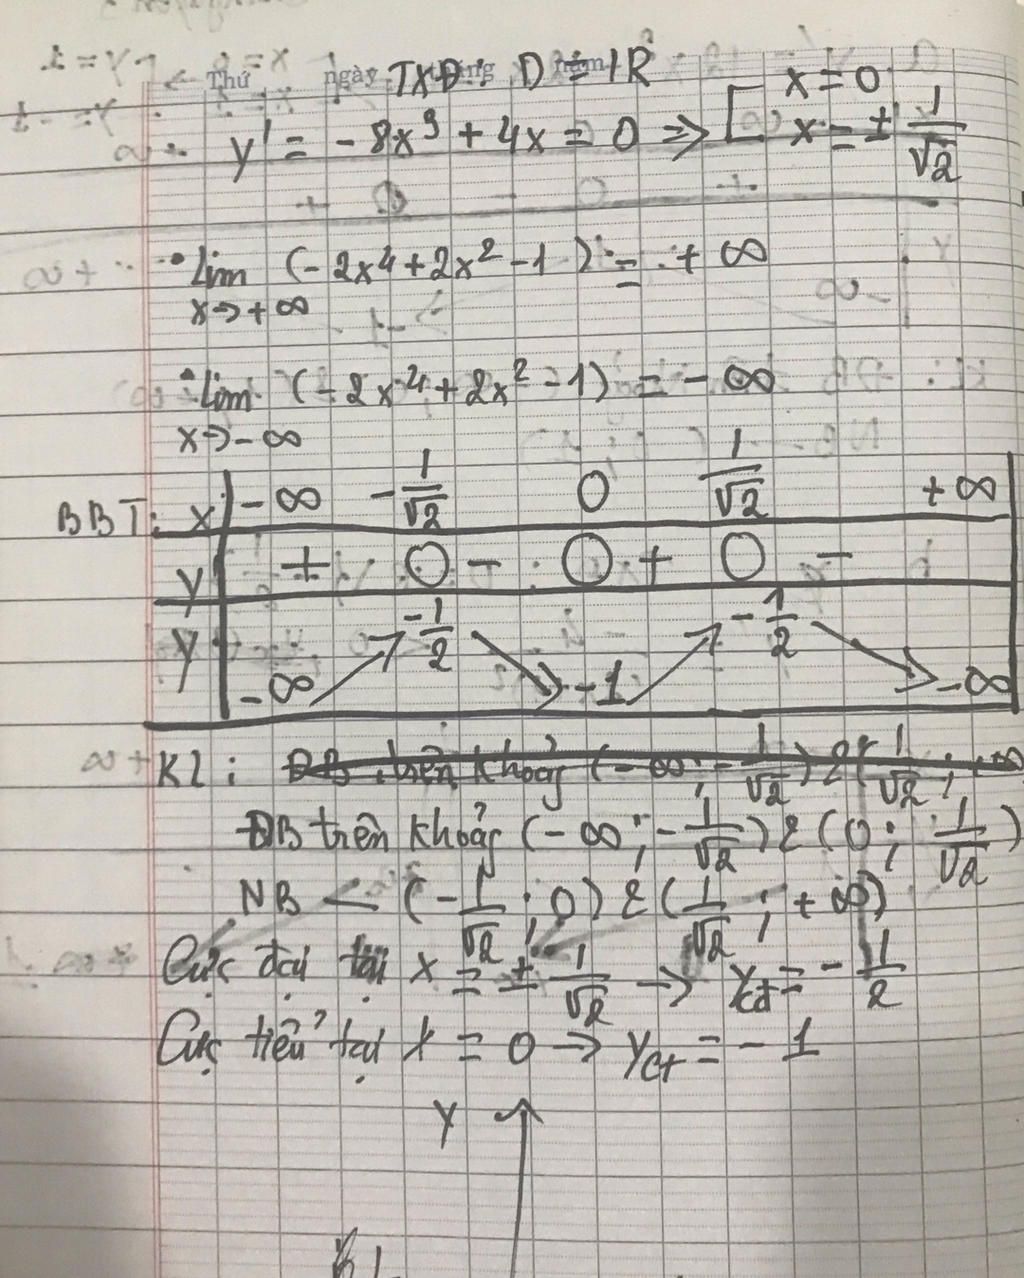 Thứ ngày TXĐ: D = IR
y' = - 8x³ + 4x = 0 => [ x = 0
x = ± 1/√2
• Lim (- 2x⁴ + 2x² - 1) = + ∞
x -> + ∞
• Lim (- 2x⁴ + 2x² - 1) = - ∞
x -> - ∞
BBT: x | - ∞ - 1/√2 0 1/√2 + ∞
y' | + 0 - 0 + 0 -
y | - ∞ ↗ -1/2 ↘ - 1 ↗ - 1/2 ↘ - ∞
KL: ĐB trên khoảng (- ∞; - 1/√2) & (1/√2; + ∞
ĐB trên khoảng (- ∞; - 1/√2) & (0; 1/√2)
NB < (- 1/√2; 0) & (1/√2; + ∞)
Cực đại tại x = ± 1/√2 -> ycđ = - 1/2
Cực tiểu tại x = 0 -> yct = - 1
y